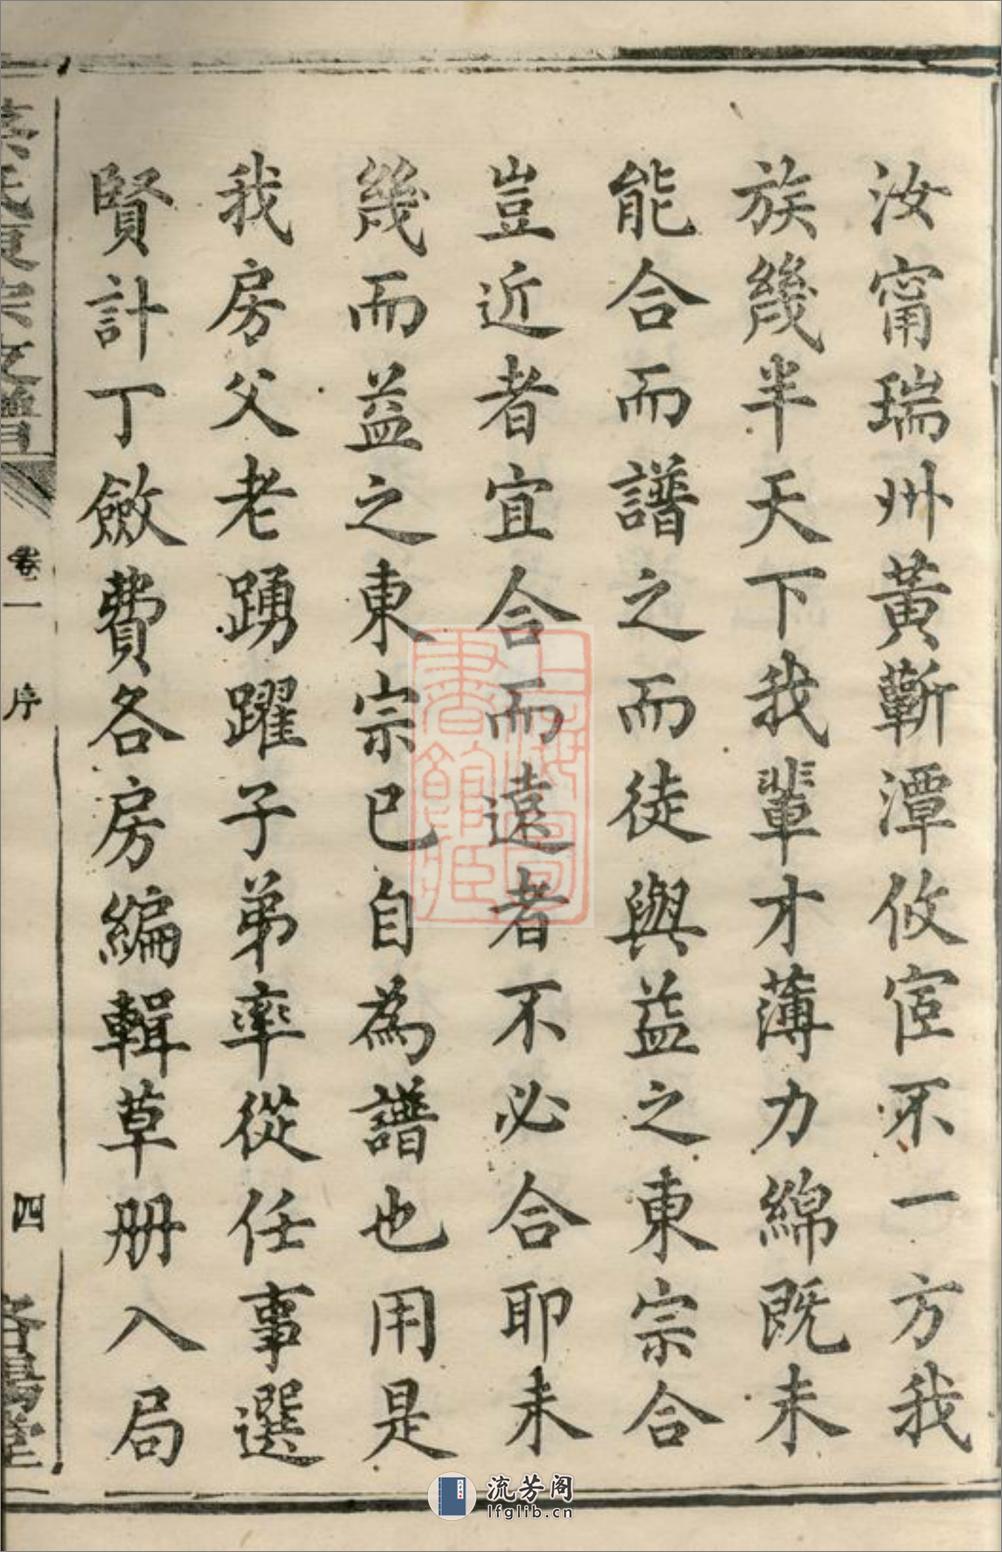 汝甯瑞州黃蘄潭攸宦不一方我
族幾半天下我輩才薄力綿既未
能合而譜之而徒與益之東宗合
豈近者宜合而遠者不必合耶未
幾而益之東宗已自為譜也用是
我房父老踴躍子弟率從任事選
賢計丁斂費各房編輯草册入局
卷一
序
四
上海圖書館藏
流芳阁
lfglib.cn